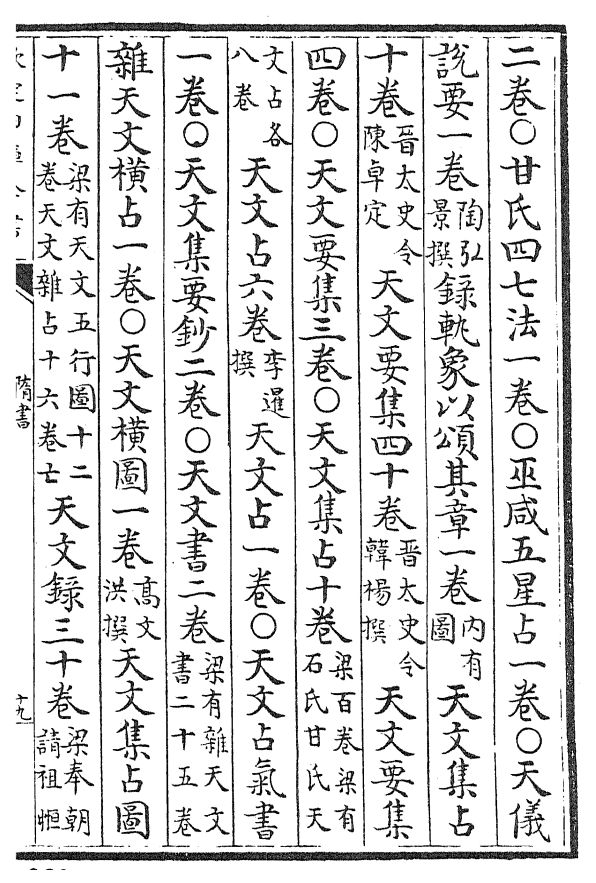 二卷○甘氏四七法一卷○巫咸五星占一卷○天儀
說要一卷陶弘景撰錄軌象以頌其章一卷內有圖天文集占
十卷晉太史令陳卓定天文要集四十卷晉太史令韓楊撰天文要集
四卷○天文要集三卷○天文集占十卷梁百卷梁有石氏甘氏天
文占各八卷天文占六卷李暹撰天文占一卷○天文占氣書
一卷○天文集要鈔二卷○天文書二卷梁有雜天文書二十五卷
雜天文橫占一卷○天文橫圖一卷高文洪撰天文集占圖
十一卷梁有天文五行圖十二卷天文雜占十六卷亡天文錄三十卷梁奉朝請祖暅
隋書
十九